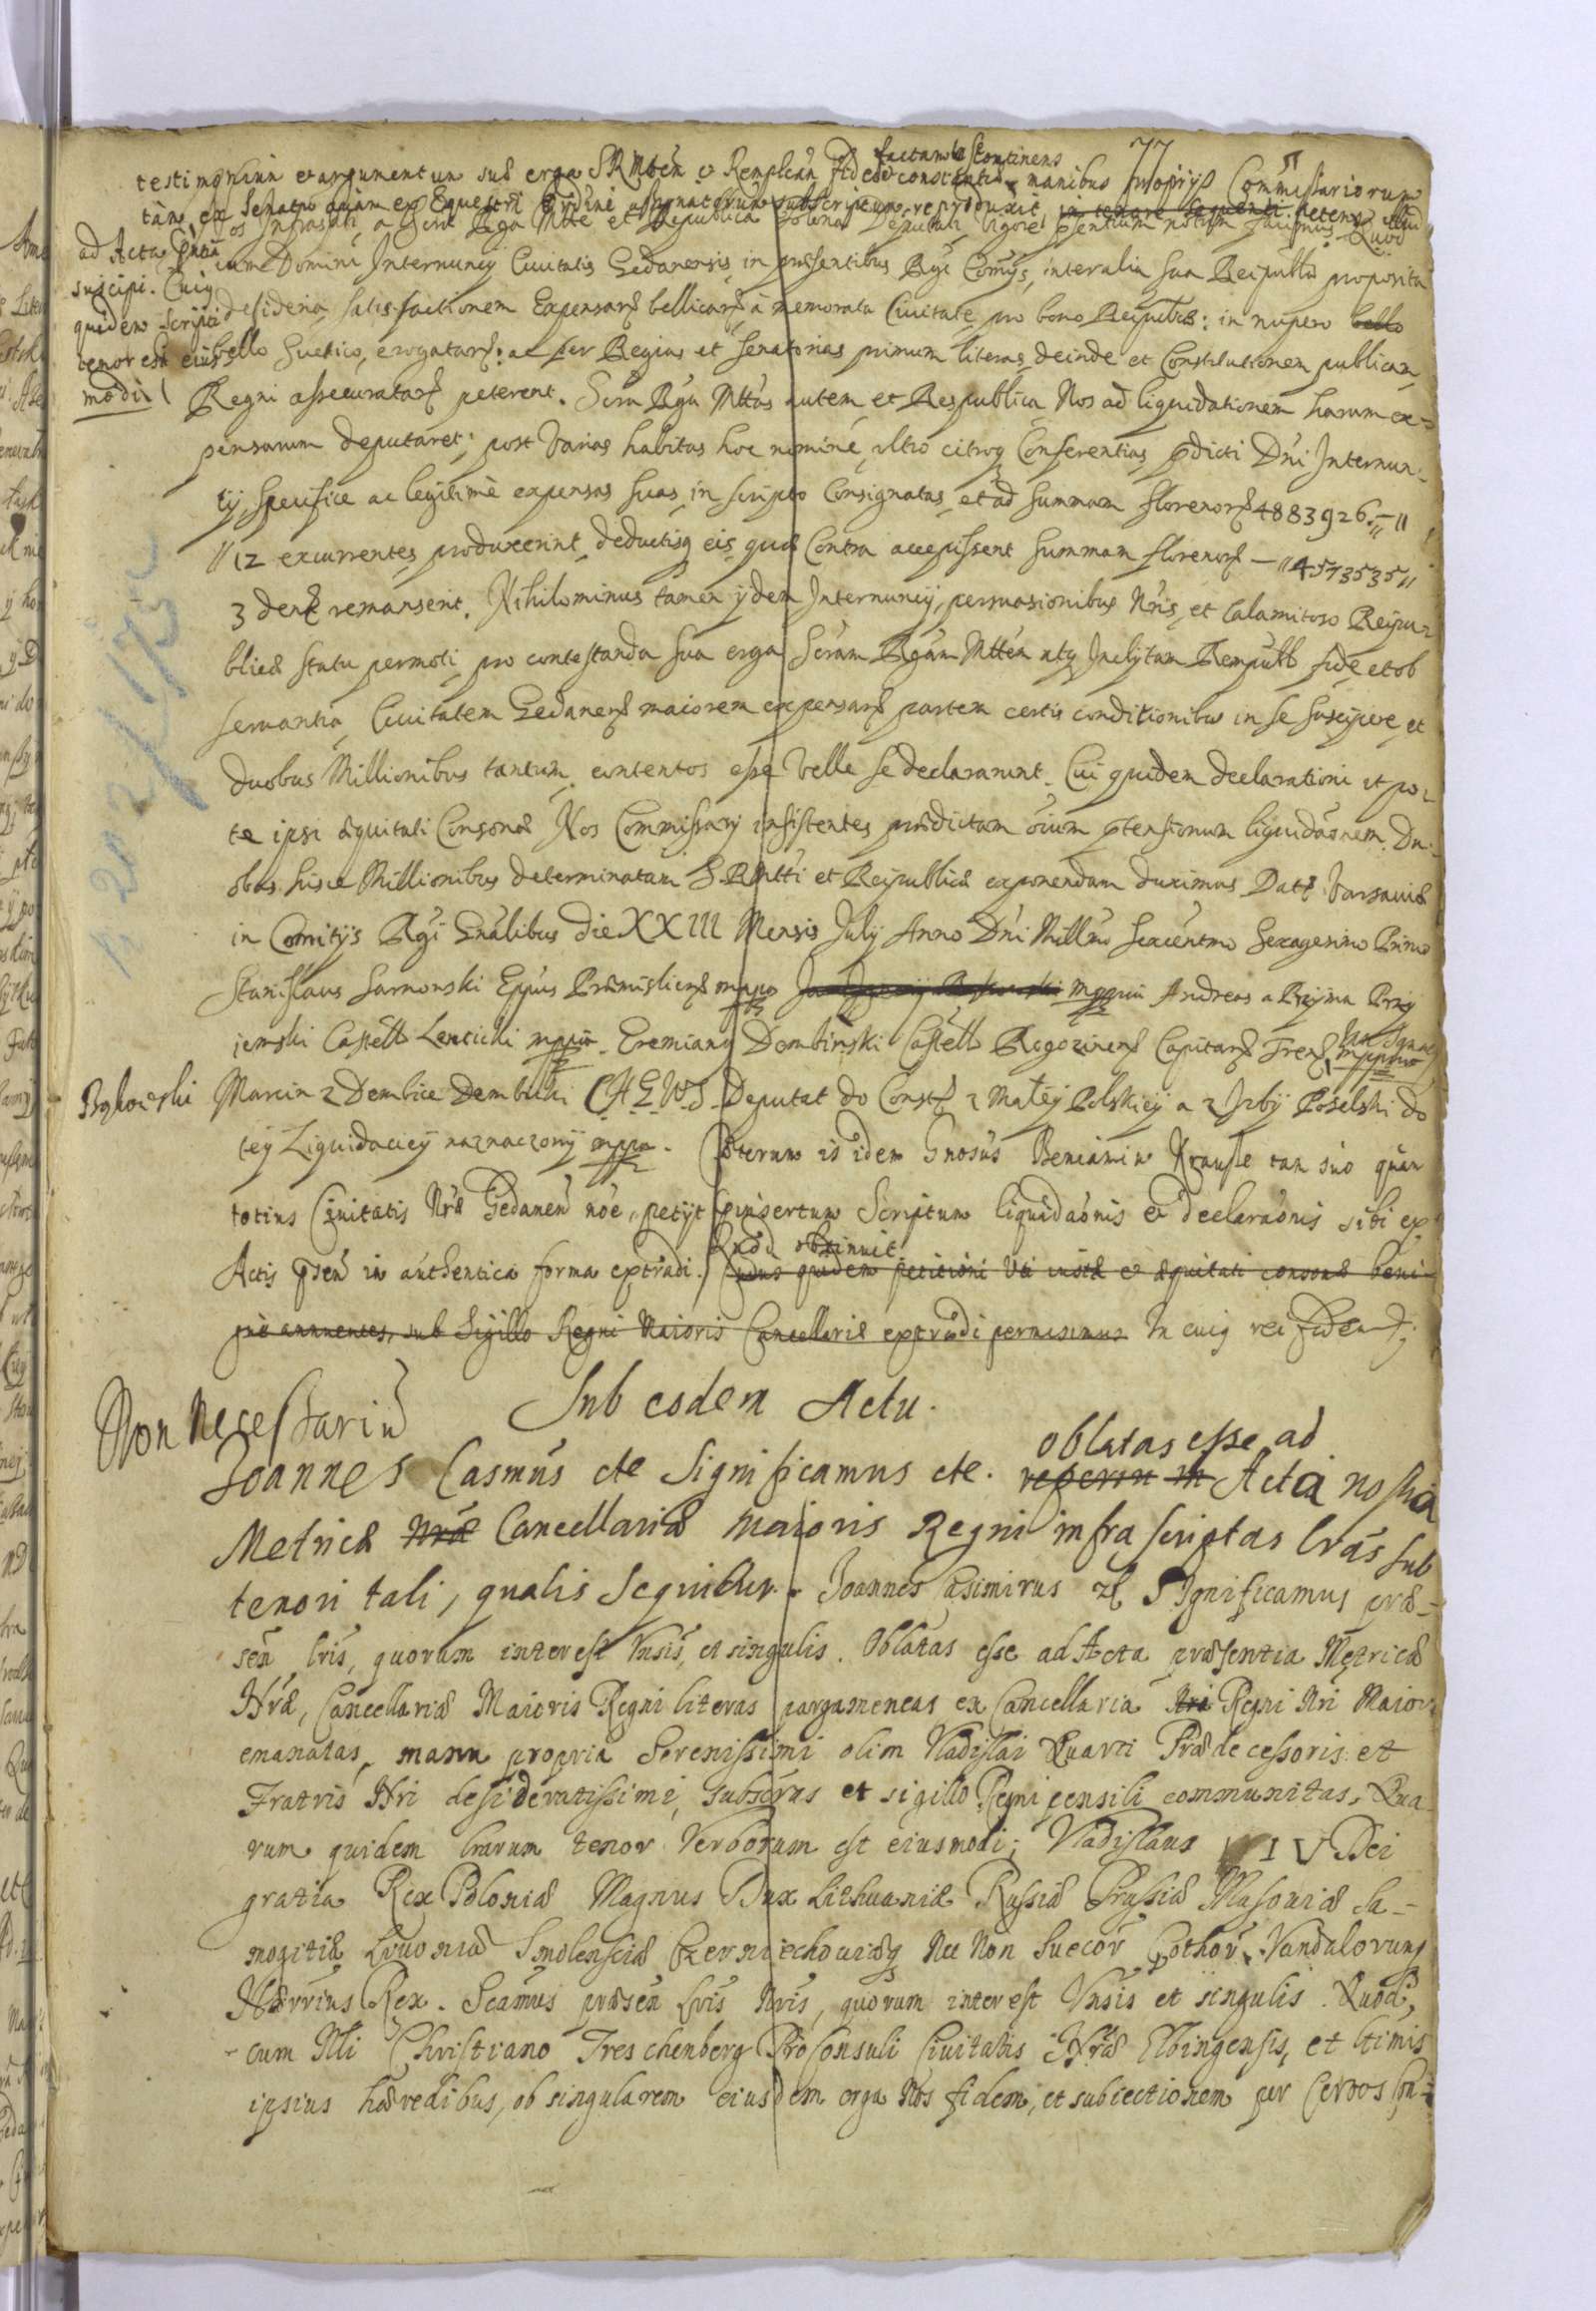 77
testimonium et argumentum suae erga SRMttem et Remplcam fidei et constantiae factamq continens manibus proprijs Commissariorum
tam ex Senatu quam ex Equestri Ordine assignatorum subscriptum reproduxit, in tenore sequenti petens illud
ad Acta suscipi. Cuiq quidem Scripti tenor est eiusmodi
Nos Infrascripti, a Sacra Rga Mtte et Republica Polona Deputati, Vigore psentium notum facimus. Quod
cum Domini Internuncij Ciuitatis Gedanensis, in praesentibus Rgi Comijs, interalia sua Reipublae proposita
desideria, satisfactionem Expensarum bellicarum à memorata Ciuitate pro bono Reipublicae: in nupero bello
bello Suetico, erogatarum: ac per Regias et Senatorias primum literas, deinde et Constitutionem publicam
Regni assecuratarum peterent. Sacra Rga Mttas autem et Respublica Nos ad liquidationem harum ex=
pensarum deputaret; post varias habitas hoc nomine, ultro citroq Conferentias pdicti Dni Internun=
tij, specifice ac legitime expensas suas in scripto Consignatas, et ad summam florenorum 4883926.-"
"12 excurrentes produxerint, deductisq eis quae Contra accepissent summam florenorum — "4573535"
3 den remanserit. Nihilominus tamen ijdem Internuncij, persuasionibus Nris, et Calamitoso Reipu=
blicae statu permoti, pro contestanda sua erga Scram Rgam Mttem atq Inclytam Rempubl fide et ob
seruantia, Ciuitatem Gedanens maiorem expensarum partem certis conditionibus in se suscipere, et
duobus Millionibus tantum contentos esse velle se declararunt. Cui quidem declarationi ut po=
te ipsi aequitati Consonae Nos Commissarij insistentes praedictam oium ptensionum liquidaonem, Du=
obus hisce Millionibus determinatam S.RMtti et Reipublicae exponendam duximus Datt Varsaviae
in Comitijs Rgi Gnalibus die XXIII Mensis July Anno Dni Millmo Sexcentmo Sexagesimo Primo
Stanislaus Sarnowski Eppus Praemisliens mppa mppria Andreas a Przyima Przy
iemski Castell Lencicki mppria. Eremianq Dombinski Castell Rogozinens Capitans Jan Ignacy
Bąkowski mpprio Marcin z Dembice Dembicki C.H.G.W.S. Deputat do Const z Małey Polskiey a z Izby Poselski do
tey Liquidaciey naznaczony mppa. Caeterum is idem Gnosus Beniamin Krause tam suo quam
totius Ciuitatis Nrae Gedanen noe, petijt pinsertum Scriptum liquidaonis et declaraonis sibi ex
Actis psen in authentica forma extradi. Quod obtinuit Cuius quidem petitioni uti iustae et aequitati consonae beni=
gne annuentes, sub Sigillo Regni Maioris Cancellariae extradi permisimus In cuiq rei fidem
Non Necessariu
Sub eodem Actu.
Joannes Casmus etc Significamus etc. reperiri in oblatas esse ad Acta nostra
Metricae Nrae Cancellariae Maioris Regni infra scriptas lras sub
tenori tali, qualis sequitur. Joannes Casimirus etc Significamus prae=
sen lris, quorum interest Vnsis, et singulis. Oblatas esse ad Acta praesentia Metricae
Nrae, Cancellariae Maioris Regni literas pargameneas ex Cancellaria Nra Regni Nri Maiori
emanatas, manu propria Serenissimi olim Vladislai Quarti Praedecessoris et
Fratris Nri desideratissimi, subscras et sigillo Regni pensili communitas, Qua=
rum quidem lrarum tenor Verborum est eiusmodi; Vladislaus IV Dei
gratia Rex Poloniae Magnus Dux Lithuaniae Russiae Prussiae Masouiae Sa=
mogitiae Liuoniae Smolensciae Czerniechouiaeq Nec Non Suecor Gothor Vandalorumq
Haerrius Rex. Scamus praesen lris Nris, quorum interest Vnsis et singulis. Quod,
cum Nli Christiano Treschenberg Proconsuli Ciuitatis Nrae Elbingensis, et ltimis
ipsius haeredibus, ob singularem eiusdem erga Nos fidem, et subiectionem per Certos